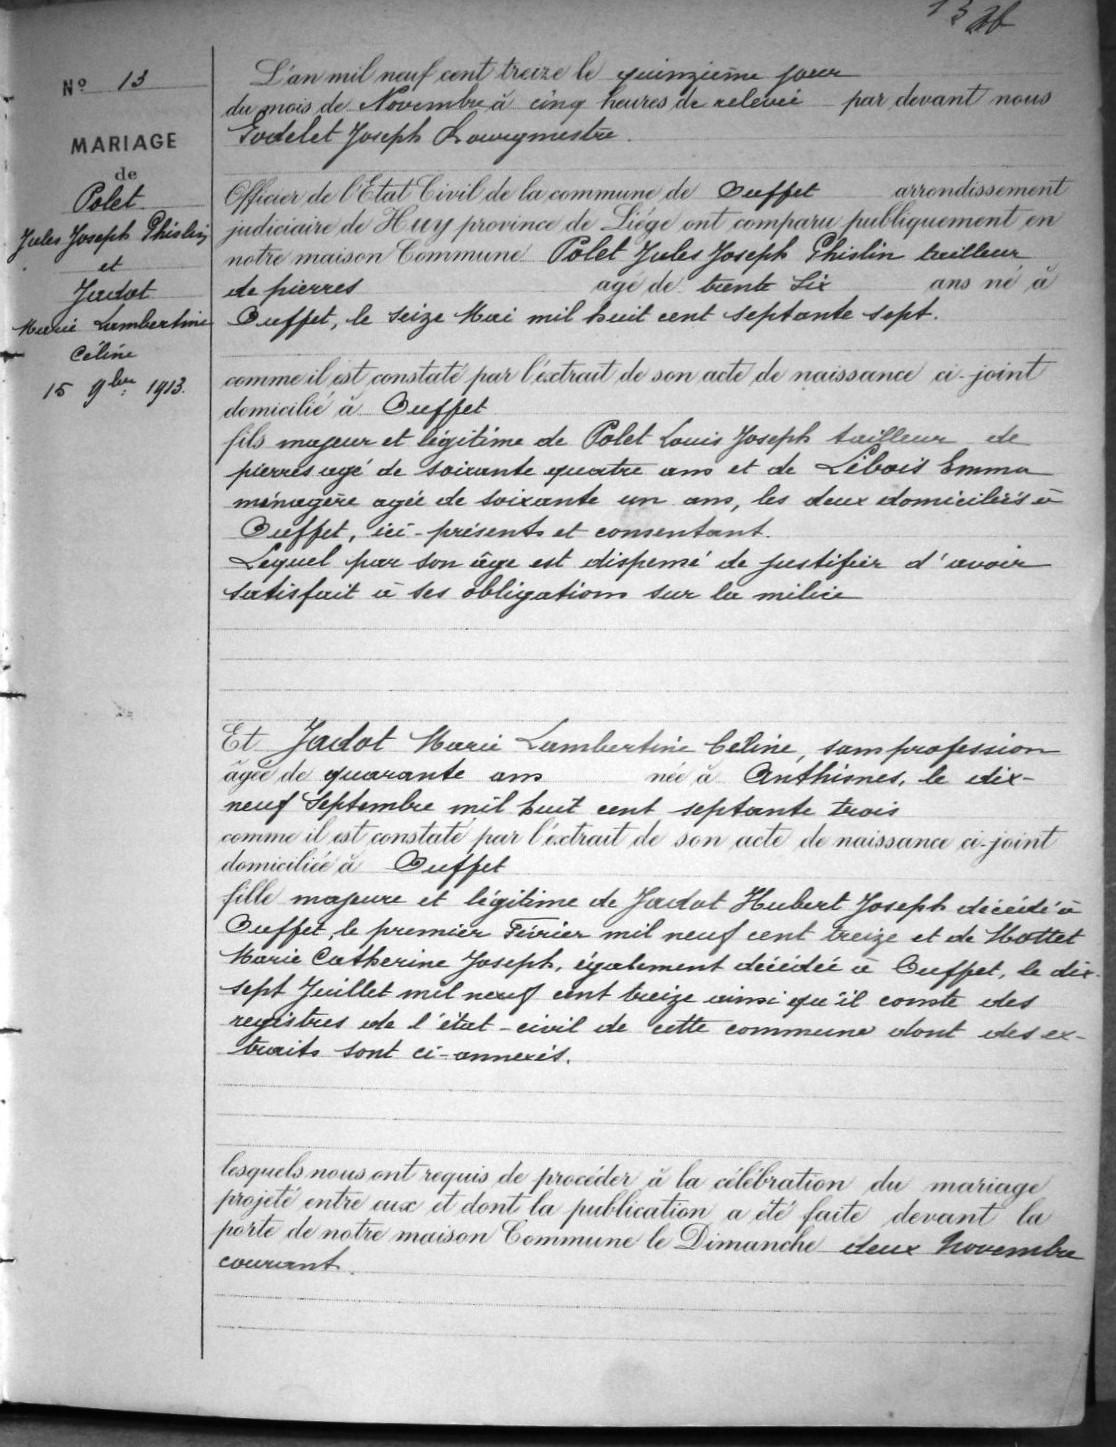 13
Nº 13
MARIAGE
de
Polet
Jules Joseph Ghislin
et
Jadot
Marie Lambertine
Céline
15 9bre 1913.
L'an mil neuf cent treize le quinzième jour
du mois de Novembre à cinq heures de relevée par devant nous
Godelet Joseph Bourgmestre.
Officier de l'Etat Civil de la commune de Ouffet arrondissement
judiciaire de Huy province de Liége ont comparu publiquement en
notre maison Commune Polet Jules Joseph Ghislin tailleur
de pierres agé de trente six ans né à
Ouffet, le seize Mai mil huit cent septante sept.
comme il est constaté par l'extrait de son acte de naissance ci-joint
domicilié à Ouffet
fils majeur et légitime de Polet Louis Joseph tailleur de
pierres agé de soixante quatre ans et de Lebois Emma
ménagère agée de soixante un ans, les deux domiciliés à
Ouffet, ici-présents et consentant.
Lequel par son âge est dispensé de justifier d'avoir
satisfait à ses obligations sur la milice
Et Jadot Marie Lambertine Céline, sans profession
âgée de quarante ans née à Anthisnes, le dix-
neuf Septembre mil huit cent septante trois
comme il est constaté par l'extrait de son acte de naissance ci-joint
domiciliée à Ouffet
fille majeure et légitime de Jadot Hubert Joseph décédé à
Ouffet, le premier Février mil neuf cent treize et de Mottet
Marie Catherine Joseph, également décédée à Ouffet, le dix-
sept Juillet mil neuf cent treize ainsi qu'il conste des
registres de l'état-civil de cette commune dont des ex-
traits sont ci-annexés.
lesquels nous ont requis de procéder à la célébration du mariage
projeté entre eux et dont la publication a été faite devant la
porte de notre maison Commune le Dimanche deux Novembre
courant.